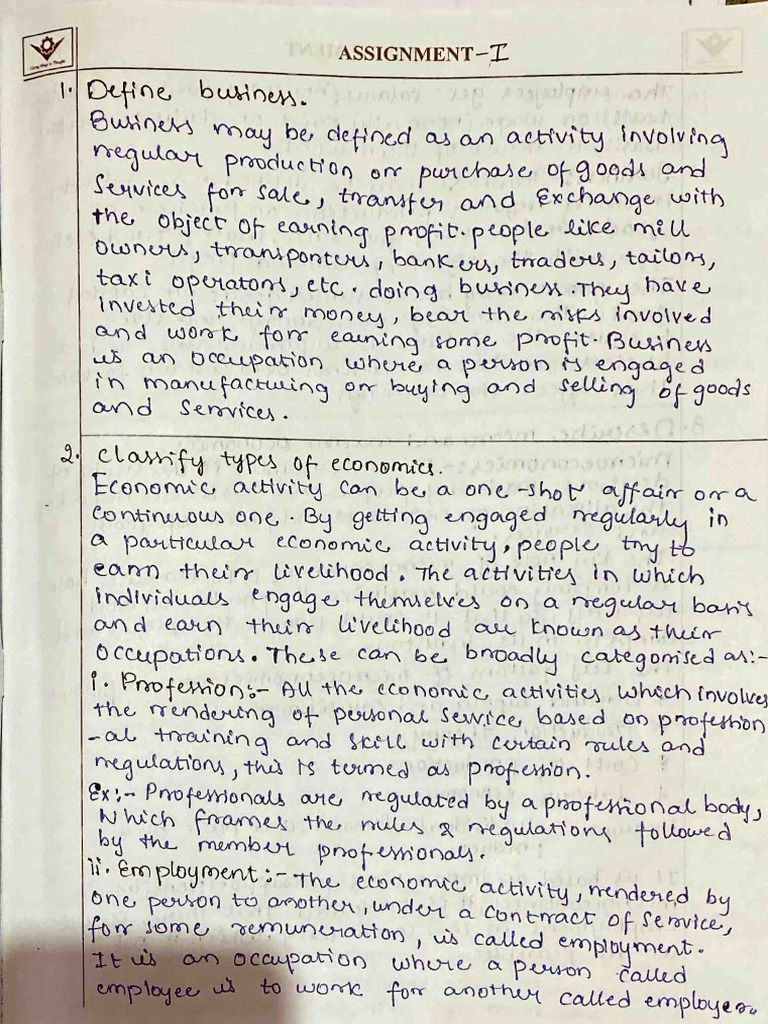 ASSIGNMENT-I
1. Define business.
Business may be defined as an activity involving
regular production or purchase of goods and
Services for sale, transfer and Exchange with
the object of earning profit. people like mill
owners, transporters, bankers, traders, tailors,
taxi operators, etc. doing business. They have
invested their money, bear the risks involved
and work for earning some profit. Business
is an occupation where a person is engaged
in manufacturing or buying and selling of goods
and services.
2. Classify types of economics.
Economic activity can be a one-shot affair or a
continuous one. By getting engaged regularly in
a particular economic activity, people try to
earn their livelihood. The activities in which
individuals engage themselves on a regular basis
and earn their livelihood are known as their
occupations. These can be broadly categorised as:-
i. Profession:- All the economic activities which involves
the rendering of personal service based on profession
-al training and skill with certain rules and
regulations, this is termed as profession.
Ex:- Professionals are regulated by a professional body,
which frames the rules & regulations followed
by the member professionals.
ii. Employment:- The economic activity, rendered by
one person to another, under a contract of service,
for some remuneration, is called employment.
It is an occupation where a person called
employee is to work for another called employer.